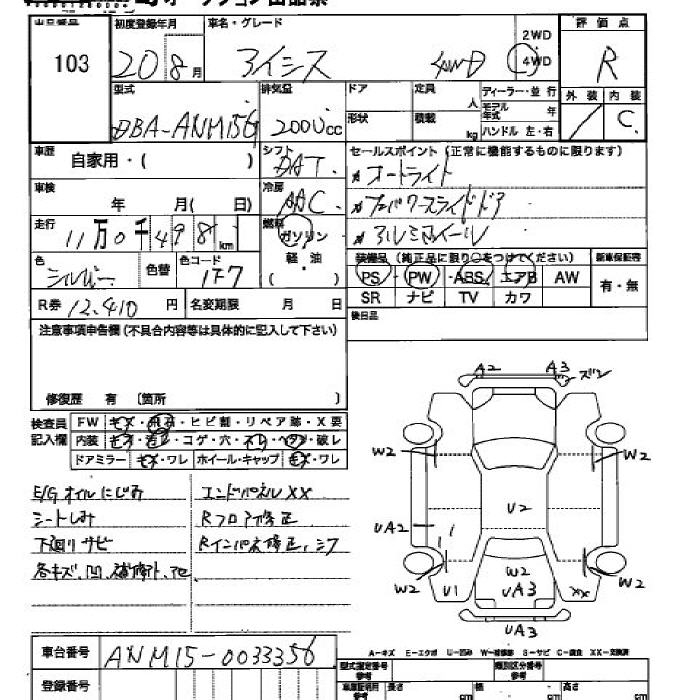 103
初度登録年月
車名・グレード
2WD
4WD
評価点
20 8月
アイシス
4WD
R
型式
排気量
ドア
定員
人
ディーラー・並行
モデル年式
年
外装
内装
DBA-ANM15G
2000cc
形状
積載
kg
ハンドル 左・右
C
車歴
自家用・( )
シフト
DAT
セールスポイント (正常に機能するものに限ります)
オートライト
車検
年 月( 日)
冷房
AAC
パワースライドドア
走行
11万0千498km
燃料
ガソリン
軽・油
( )
アルミホイール
色
シルバー
色替
色コード
1F7
装備品 (純正品に限り○をつけてください)
新車保証書
PS PW ABS エアB AW
有・無
R券 12,410 円
名変期限 月 日
SR ナビ TV カワ
後日品
注意事項申告欄 (不具合内容等は具体的に記入して下さい)
修復歴 有 〔箇所 〕
検査員記入欄
FW キズ・飛石・ヒビ割・リペア跡・X要
内装 キズ・汚レ・コゲ・穴・スレ・ヘタリ・破レ
ドアミラー キズ・ワレ ホイール・キャップ キズ・ワレ
E/G オイルにじみ
シートしみ
下廻りサビ
各キズ、凹、補修跡、他
エンドパネルXX
Rフロア修正
Rインパネ修正、シワ
A2 A3 ズレ
W2 W2
U2
UA2
W2 W2
U1 W2 UA3 XX
UA3
A-キズ E-エクボ U-凹み W-補修跡 S-サビ C-腐食 XX-交換済
車台番号
ANM15-0033356
登録番号
型式指定番号
参考
類別区分番号
参考
車庫証明用
参考
長さ
cm
幅
cm
高さ
cm